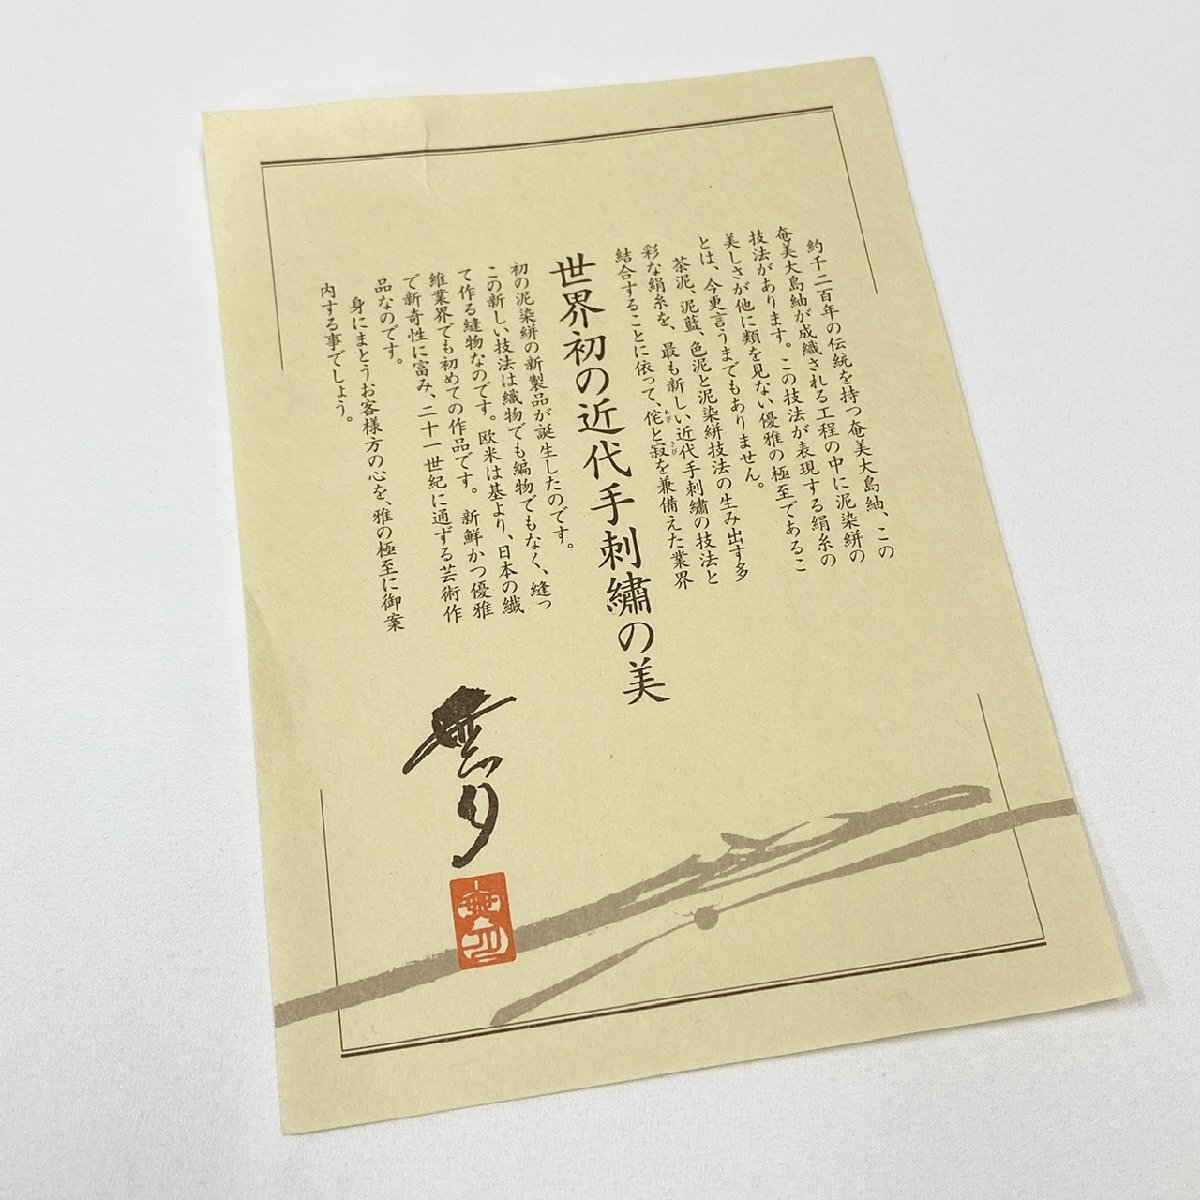 約千二百年の伝統を持つ奄美大島紬、この
奄美大島紬が成織される工程の中に泥染絣の
技法があります。この技法が表現する絹糸の
美しさが他に類を見ない優雅の極至であるこ
とは、今更言うまでもありません。
茶泥、泥藍、色泥と泥染絣技法の生み出す多
彩な絹糸を、最も新しい近代手刺繍の技法と
結合することに依って、侘と寂を兼備えた業界
世界初の近代手刺繍の美
初の泥染絣の新製品が誕生したのです。
この新しい技法は織物でも編物でもなく、縫っ
て作る縫物なのです。欧米は基より、日本の繊
維業界でも初めての作品です。新鮮かつ優雅
で新奇性に富み、二十一世紀に通ずる芸術作
品なのです。
身にまとうお客様方の心を、雅の極至に御案
内する事でしょう。